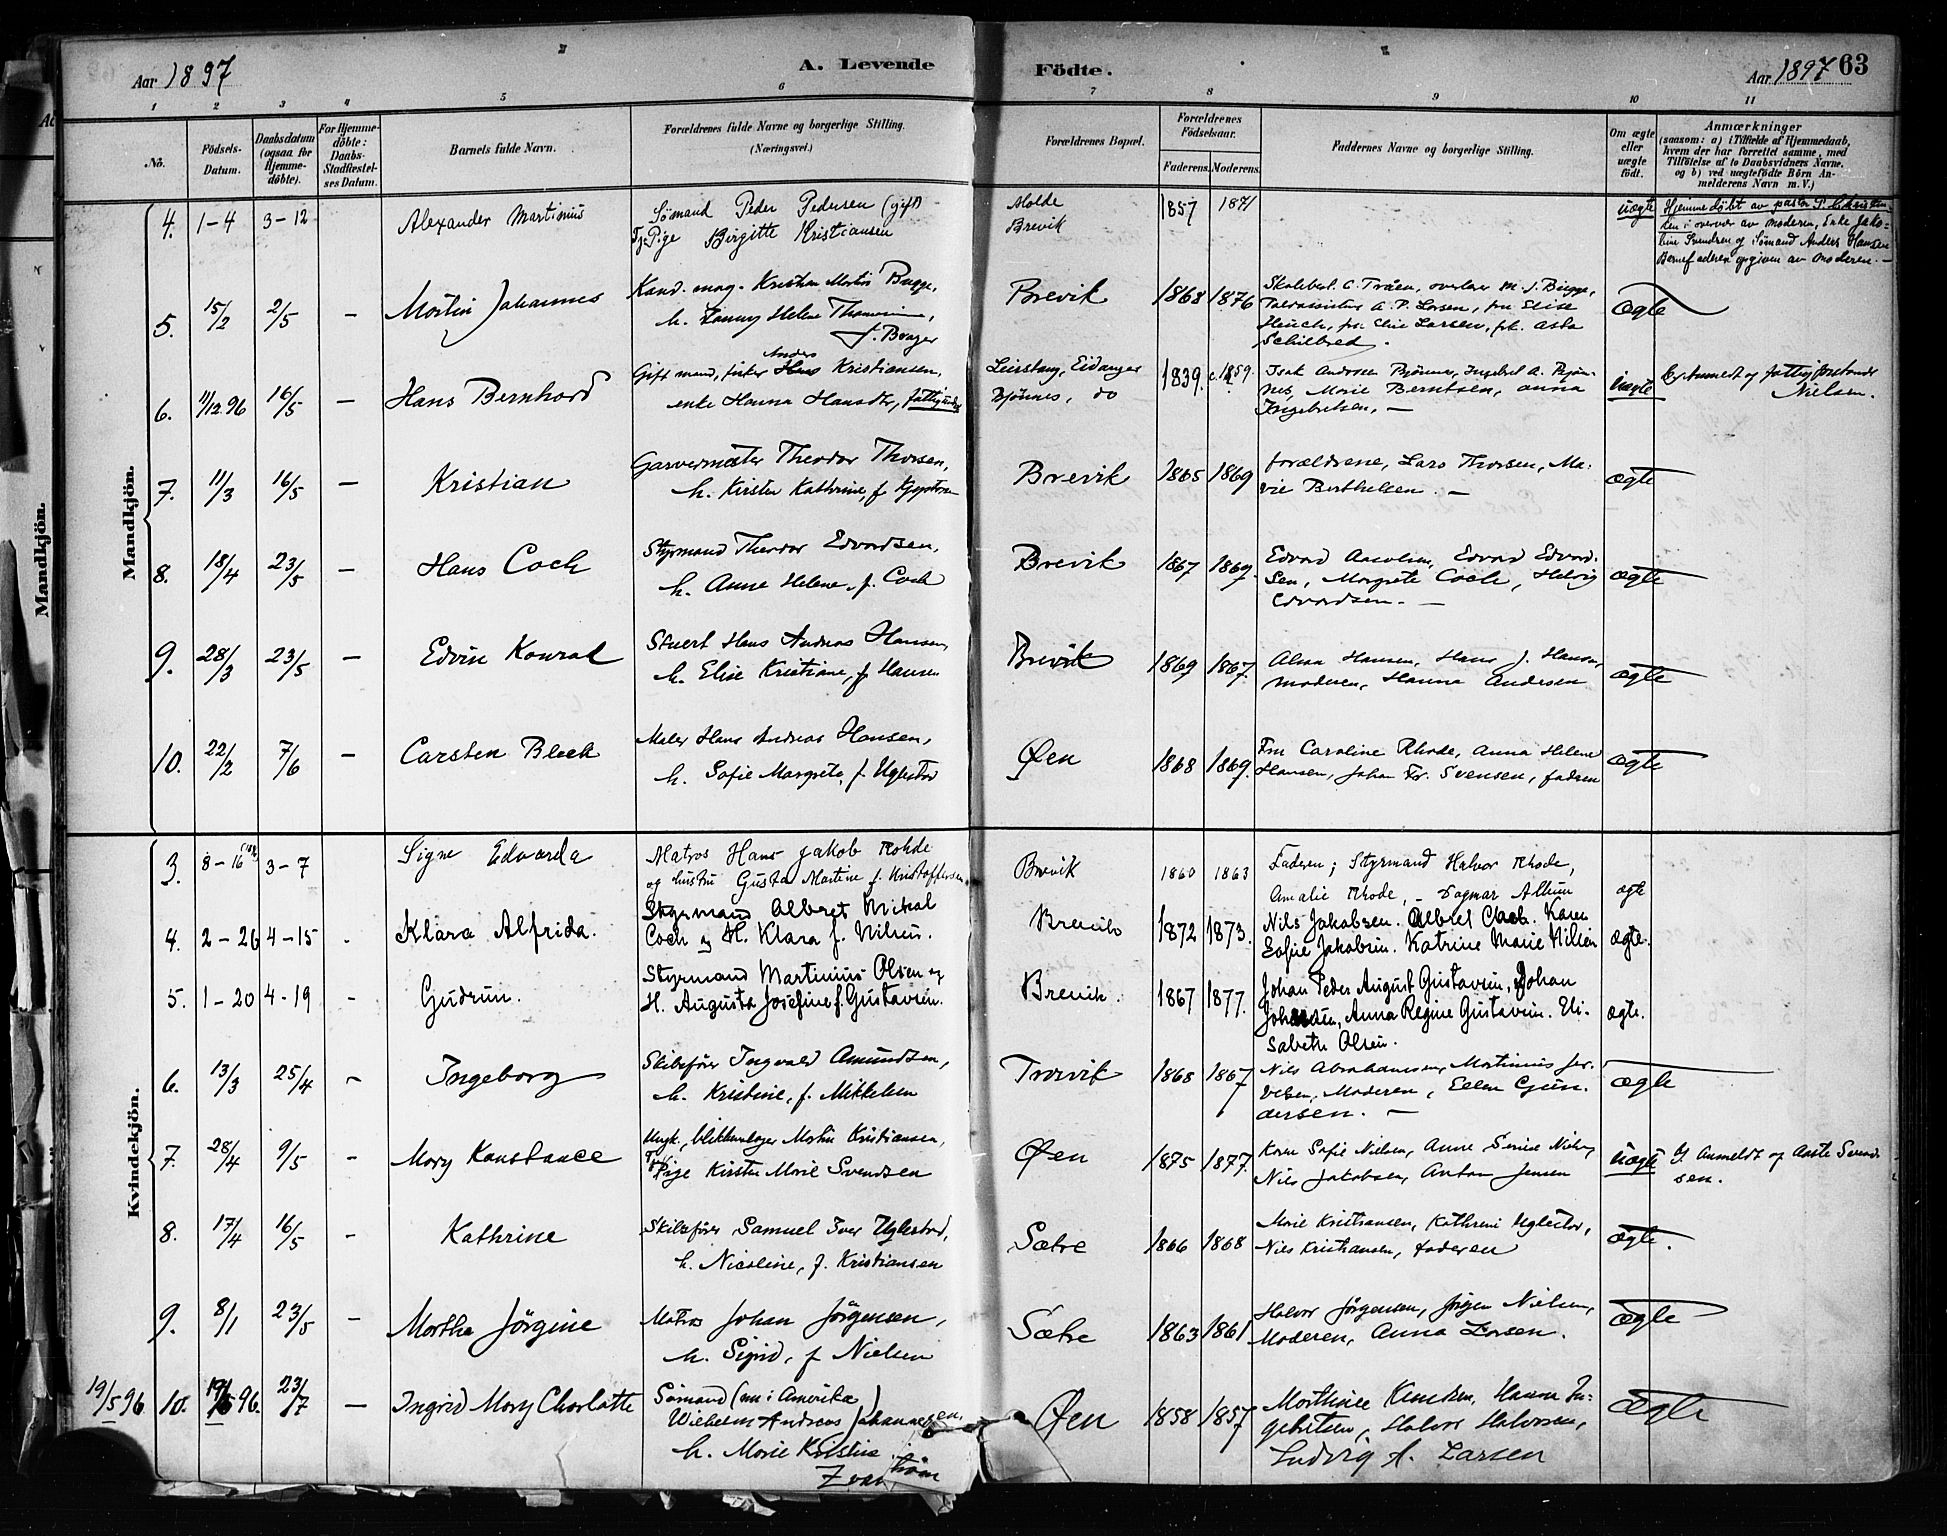 Aar 1897
A. Levende Födte.
Aar 1897 63
1 2 3 4 5 6 7 8 9 10 11
No.
Födsels-Datum.
Daabsdatum (ogsaa for Hjemme-döbte).
For Hjemme-döbte: Daabs-Stadfæstel-ses Datum.
Barnets fulde Navn.
Forældrenes fulde Navne og borgerlige Stilling.
(Næringsvei.)
Forældrenes Bopæl.
Forældrenes Födselsaar.
Faderens. Moderens.
Faddernes Navne og borgerlige Stilling.
Om ægte eller uægte födt.
Anmærkninger
(saasom: a) i Tilfælde af Hjemmedaab, hvem der har forrettet samme, med Tilföielse af to Daabsvidners Navne, og b) ved uægtefödte Börn An-melderens Navn m. V.)
Mandkjön.
Mandkjön.
4. 1-4 3-12 Alexander Martinius
Sømand Peder Pedersen (gift)
Tj. Pige Birgitte Kristiansen
Molde
Brevik
1857 1871
uægte
Hjemmedøbt av pastor P.
overvær av moderen, Enke Jako-
bine Svendsen og Sømand Anders Hansen
Barnefaderen opgiven av moderen. -
5. 15/2 2/5 - Martin Johannes
Kand. mag. Kristian Martin Bugge,
h. Fanny Helene
f. Brager
Brevik 1868 1876
Skolebest. C. Tråen, overlærer M. J. Bugge,
A. P. Larsen, fru Elise
Heuch, fru Elise Larsen, frk. Asta
Schilbred.
ægte
6. 11/12 96 16/5 - Hans Bernhard
Gift mand, fisker Anders Kristiansen,
enke Hanna Hansdtr, fattigunderst
Leirstang, Eidanger
Bjönnes, do
1839. c. 1859.
Isak Andersen Bjönnes, Ingebret A. Bjön-
nes, Marie Berntsen, Anna
Ingebretsen, -
uægte
Anmeldt og fattigforstander
Nielsen.
7. 11/3 16/5 - Kristian
Garvermester Theodor Thorsen,
h. Kirsten Kathrine, f.
Brevik 1865 1869
forældrene, Lars Thorsen, Ma-
rie Berthelsen. -
ægte
8. 18/4 23/5 - Hans Coch
Styrmand Theodor Edvardsen,
h. Anne Helene, f. Coch
Brevik 1867 1869.
Edvard Edvard-
sen, Margrete Coch, Helvig
Edvardsen. -
ægte
9. 28/3 23/5 - Edvin Konrad
Stuert Hans Andreas Hansen,
h. Elise Kristiane, f. Hansen
Brevik 1869 1867.
Alma Hansen, Hans J. Hansen,
moderen, Hanna Andersen
ægte
10. 22/2 7/6 - Carsten Bleck
Maler Hans Andreas Hansen,
h. Sofie Margrete, f. Uglestad
Øen 1868 1869.
Fru Caroline Rhode, Anna Helene
Hansen, Johan Fr. Svensen, fadren
ægte
Kvindekjön.
3. 8-16 3-7 Signe Edvarda
Matros Hans Jakob Rohde
og hustru Gusta Martine f. Kristoffersen
Brevik 1860 1863
Faderen; Styrmand Halvor Rhode,
Amalie Rhode, - Dagmar Album
ægte
4. 2-26 4-15 - Klara Alfrida.
Styrmand Albret Mikal
Coch og H. Klara f. Nilsen.
Brevik 1872 1873.
Nils Jakobsen. Albret Coch. Karen
Sofie Jakobsen. Katrine Marie Nilsen
ægte.
5. 1-20 4-19 - Gudrun.
Styrmand Martinius Olsen og
H. Augusta Josefine f. Gustavsen.
Brevik. 1867 1877.
Johan Peder August Gustavsen, Johan
Johansen, Anna Regine Gustavsen. Eli-
sabeth Olsen.
ægte.
6. 13/3 25/4 - Ingeborg
Skibsfører Ingvald Amundsen,
h. Kristine, f. Mikkelsen
Trosvik 1868 1867
Nils Abrahamsen, Martinius
Moderen, Ellen Gun-
dersen. -
ægte
7. 28/4 9/5 - Mary Konstance
Ungk., blikkenslager Martin Kristiansen,
Tj. Pige Kirsten Marie Svendsen
Øen 1875 1877.
Karen Sofie Nielsen, Anne Nielsen,
Nils Jakobsen, Anton Jensen
uægte
Anmeldt af Aaste Svend-
sen.
8. 17/4 16/5 - Kathrine
Skibsfører Samuel Iver Uglestad,
h. Nicoline, f. Kristiansen
Sætre 1866 1868
Marie Kristiansen, Kathrine Uglestad,
Nils Kristiansen, faderen
ægte.
9. 8/1 23/5 - Marthe Jörgine
Matros Johan Jörgensen,
h. Sigrid, f. Nielsen
Sætre 1863 1861
Halvor Jörgensen, Jörgen Nielsen,
Moderen, Anna Larsen.
ægte
19/5 96 10. 19/5 96. 23/7 - Ingrid Mary Charlotte
Sømand (nu i Amerika)
Wilhelm Andreas Johannesen,
h. Marie Kristine
Øen 1858 1857
Marthine Knudsen, Hanna In-
gebretsen, Halvor Halvorsen,
Ludvig A. Larsen
ægte